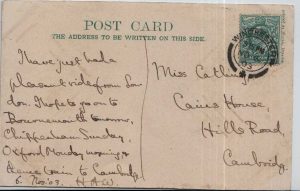 POST CARD
THE ADDRESS TO BE WRITTEN ON THIS SIDE.
I have just had a
pleasant ride from Lon
don. I hope to go on to
Bournemouth tomorrow,
Chippenham Sunday,
Oxford Monday morning &
train to Cambdg.
6. Nov. 03. H.A.W.
Miss Catling
Caius House,
Hills Road,
Cambridge